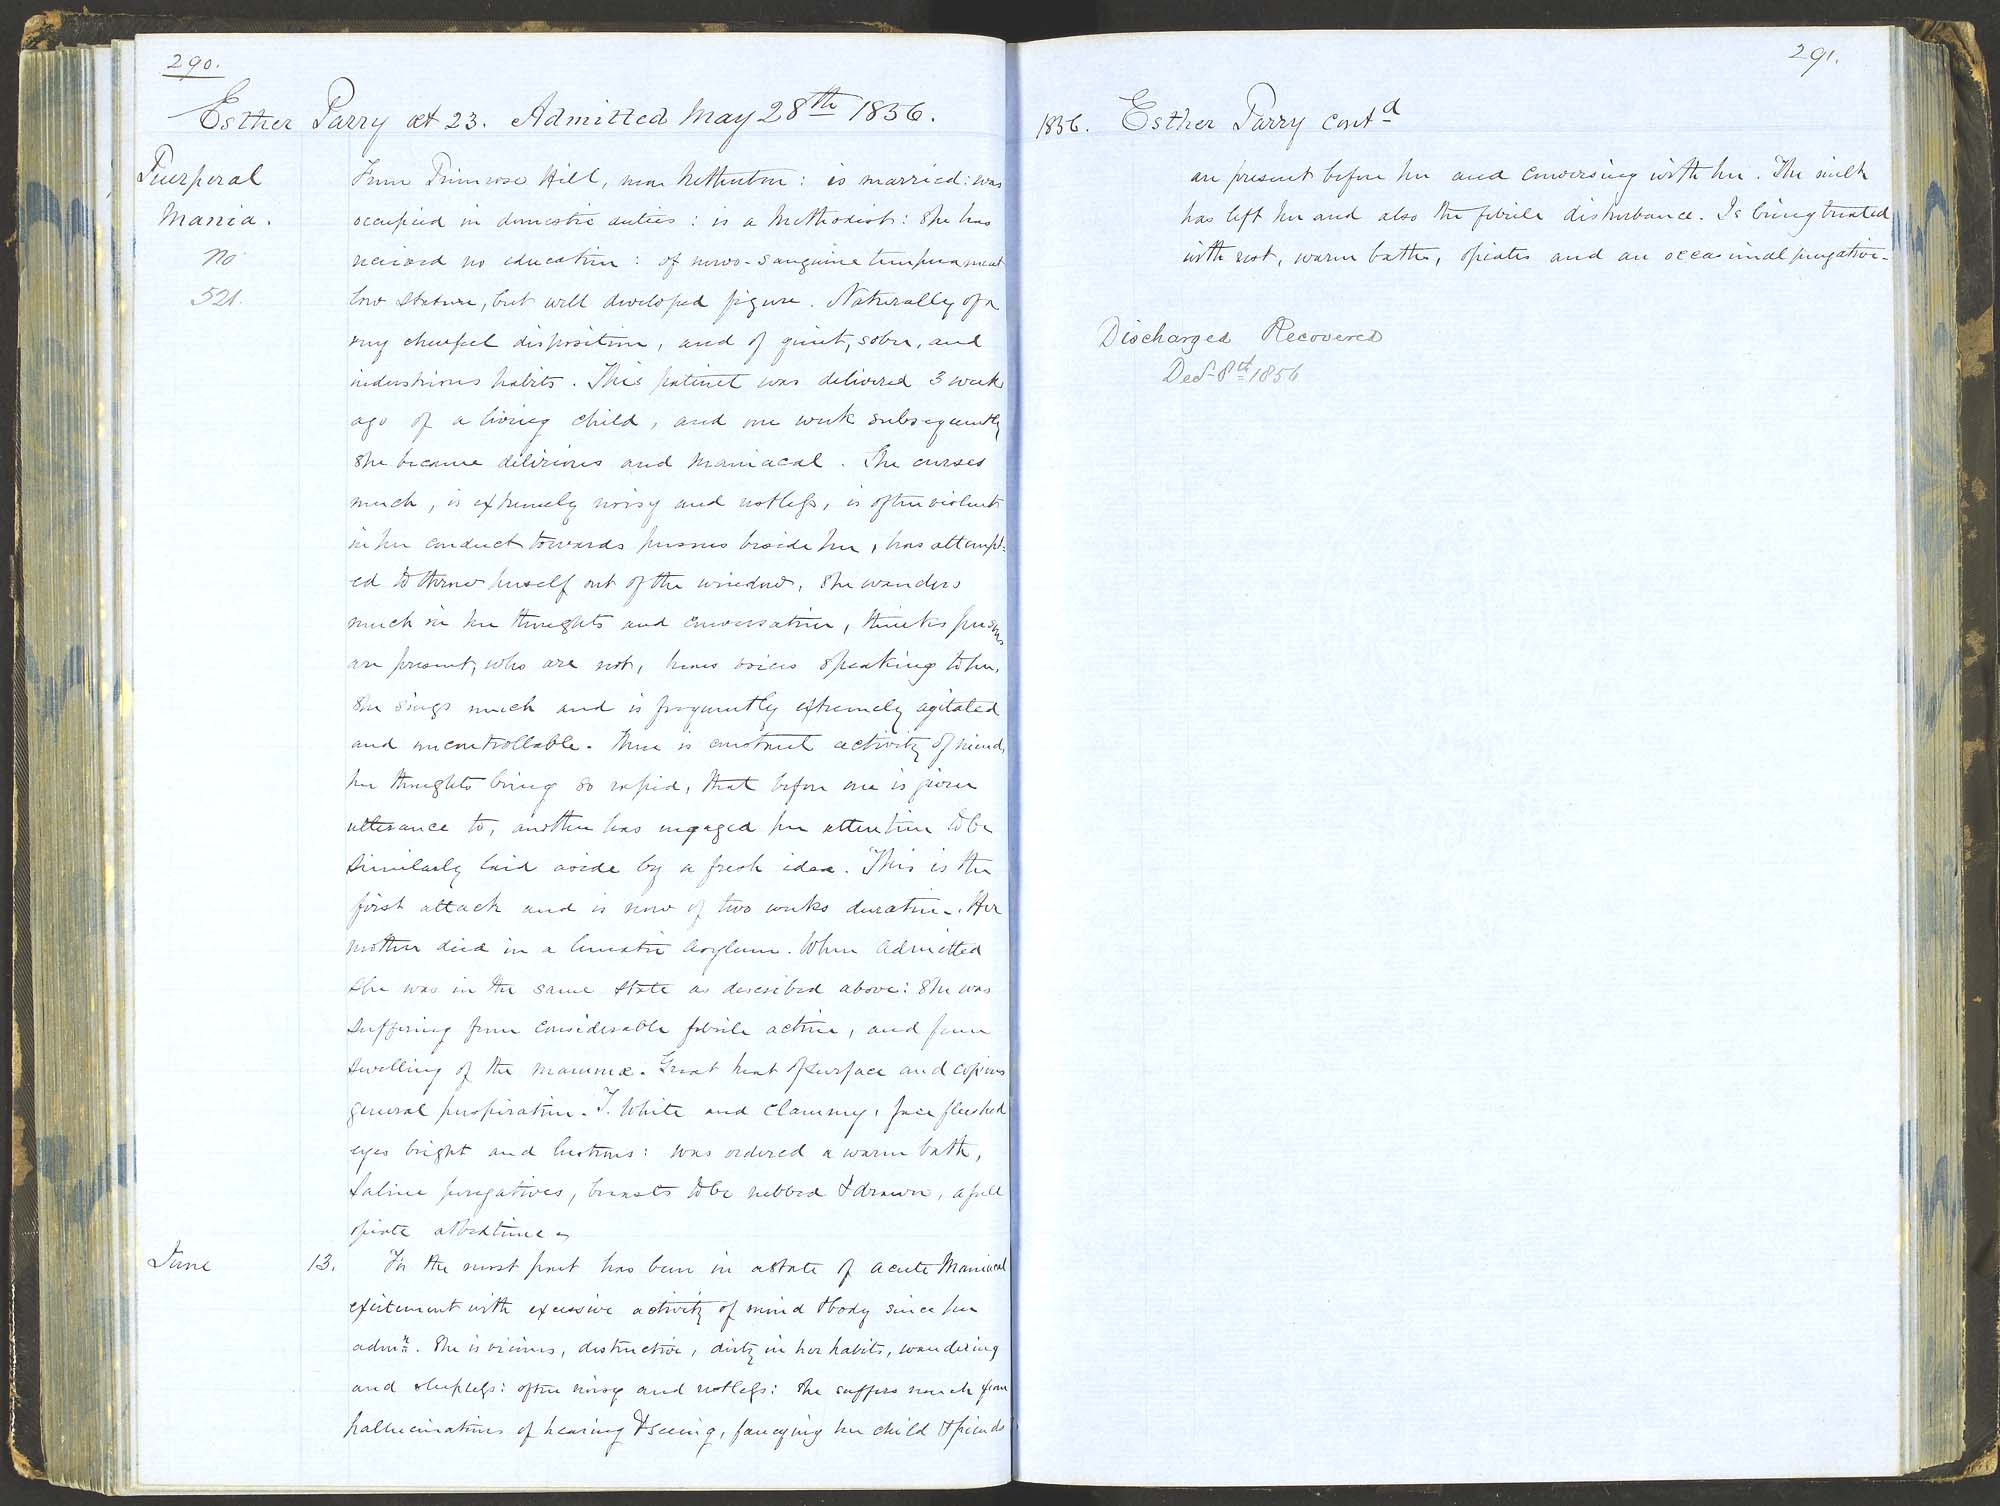 290.
Esther Parry æt 23. Admitted May 28th 1856.
Puerperal
Mania.
No
521.
From Primrose Hill, near Netherton: is married: was
occupied in domestic duties: is a Methodist: She has
received no education: of nervo-sanguine temperament
low stature, but well developed figure. Naturally of a
very cheerful disposition, and of quiet, sober, and
industrious habits. This patient was delivered 3 weeks
ago of a living child, and one week subsequently
she became delirious and maniacal. She curses
much, is extremely noisy and restless, is often violent
in her conduct towards persons beside her, has attempt=
ed to throw herself out of the window, she wanders
much in her thoughts and conversation, thinks persons
are present, who are not, hears voices speaking to her,
She sings much and is frequently extremely agitated
and uncontrollable. There is constant activity of mind,
her thoughts being so rapid, that before one is given
utterance to, another has engaged her attention to be
similarly laid aside by a fresh idea. This is the
first attack and is now of two weeks duration. Her
mother died in a lunatic Asylum. When admitted
she was in the same state as described above: She was
suffering from considerable febrile action, and from
swelling of the mammæ. Great heat of surface and copious
general perspiration. T. White and clammy, face flushed
eyes bright and lustrous: was ordered a warm bath,
saline purgatives, breasts to be rubbed & drawn, a full
opiate at bedtime
June 13. For the most part has been in a state of acute Maniacal
excitement with excessive activity of mind & body since her
admn. She is vicious, destructive, dirty in her habits, wandering
and sleepless: often noisy and restless: she suffers much from
hallucinations of hearing & seeing, fancying her child & friends
291.
1856. Esther Parry contd
are present before her and conversing with her. The milk
has left her and also the febrile disturbance. Is being treated
with rest, warm baths, opiates and an occasional purgative.
Discharged Recovered
Decr 8th 1856